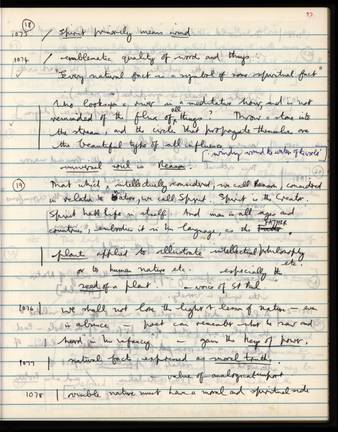 97
(18)
1073 / Spirit primarily means wind
1074 / emblematic quality of words and things
Every natural fact is a symbol of some spiritual fact
Who looks upon a river in a meditative hour, and is not
reminded of the flux of all things? Throw a stone into
the stream, and the circles that propagate themselves are
the beautiful type of all influence
universal soul is Reason.
(19) That which, intellectually considered, we call Reason, considered
in relation to nature, we call Spirit. Spirit is the Creator.
Spirit hath life in itself. And man in all ages and
countries, embodies it in his language, as the FATHER
plant applied to illustrate intellectual philosophy
or to human nature etc. especially the etc.
seed of a plant. - voice of St Paul
1076 | we shall not lose the light & lesson of nature - even
in absence - poet can remember what he saw and
heard in his infancy - again the keys of power.
1077 | natural facts expressed as moral truths.
- value of analogical import
1078 | visible nature must have a moral and spiritual side